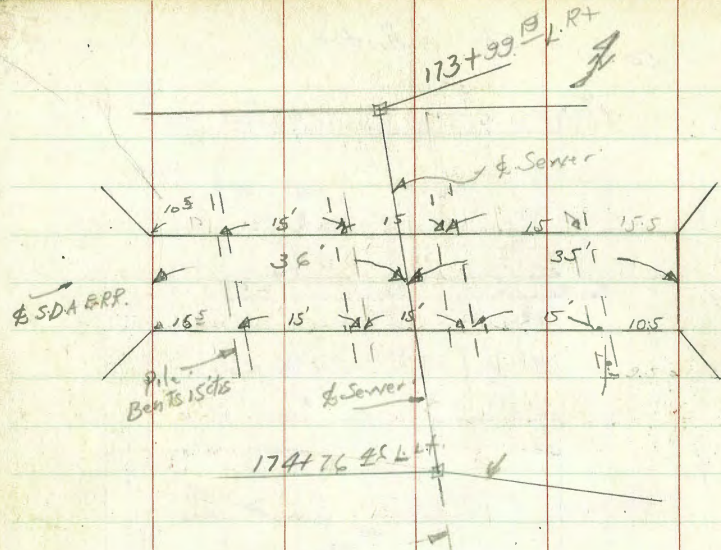 173+99 19 L. Rt
℄ Sewer
10 5 15' 15 15 15.5
36' 35'
℄ S.D.A E.RR.
15 5 15' 15' 15' 10.5
Pile
Bents 15' cts
℄ Sewer
174+76 45 L. Lt.